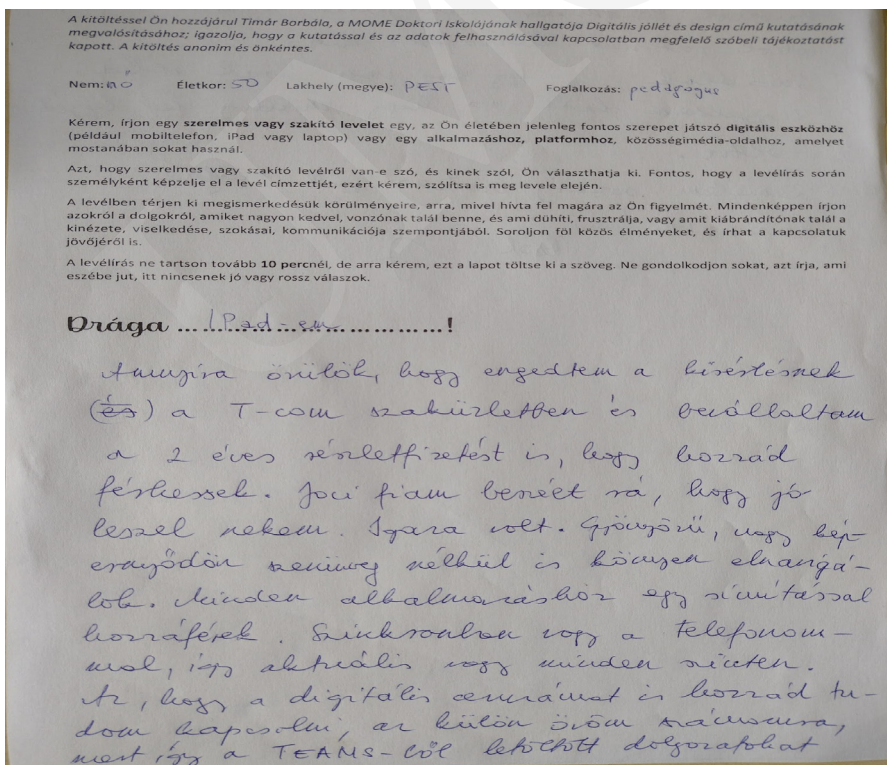 A kitöltéssel Ön hozzájárul Timár Borbála, a MOME Doktori Iskolájának hallgatója Digitális jóllét és design című kutatásának
megvalósításához; igazolja, hogy a kutatással és az adatok felhasználásával kapcsolatban megfelelő szóbeli tájékoztatást
kapott. A kitöltés anonim és önkéntes.
Nem: nő Életkor: 50 Lakhely (megye): PEST Foglalkozás: pedagógus
Kérem, írjon egy szerelmes vagy szakító levelet egy, az Ön életében jelenleg fontos szerepet játszó digitális eszközhöz
(például mobiltelefon, iPad vagy laptop) vagy egy alkalmazáshoz, platformhoz, közösségimédia-oldalhoz, amelyet
mostanában sokat használ.
Azt, hogy szerelmes vagy szakító levélről van-e szó, és kinek szól, Ön választhatja ki. Fontos, hogy a levélírás során
személyként képzelje el a levél címzettjét, ezért kérem, szólítsa is meg levele elején.
A levélben térjen ki megismerkedésük körülményeire, arra, mivel hívta fel magára az Ön figyelmét. Mindenképpen írjon
azokról a dolgokról, amiket nagyon kedvel, vonzónak talál benne, és ami dühíti, frusztrálja, vagy amit kiábrándítónak talál a
kinézete, viselkedése, szokásai, kommunikációja szempontjából. Soroljon föl közös élményeket, és írhat a kapcsolatuk
jövőjéről is.
A levélírás ne tartson tovább 10 percnél, de arra kérem, ezt a lapot töltse ki a szöveg. Ne gondolkodjon sokat, azt írja, ami
eszébe jut, itt nincsenek jó vagy rossz válaszok.
Drága ... IPad-em ...!
Annyira örülök, hogy engedtem a kísértésnek
(és) a T-com szaküzletben és bevállaltam
a 2 éves részletfizetést is, hogy hozzád
férhessek. Joci fiam beszélt rá, hogy jó
leszel nekem. Igaza volt. Gyönyörű, nagy kép-
ernyődön szemüveg nélkül is könnyen elnavigá-
lok. Minden alkalmazáshoz egy simítással
hozzáférek. Szinkronban vagy a telefonom-
mal, így aktuális vagy minden szinten.
Az, hogy a digitális ceruzámat is hozzád tu-
dom kapcsolni, az külön öröm számomra,
mert így a TEAMS-ből letöltött dolgozatokat